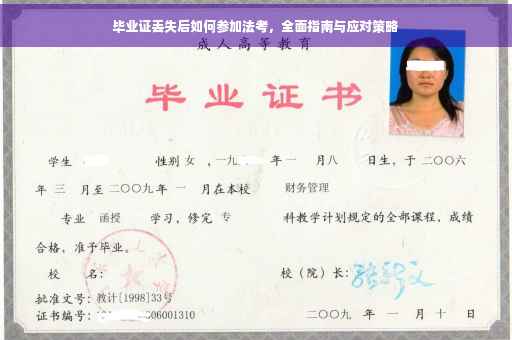 毕业证丢失后如何参加法考，全面指南与应对策略
成人高等教育
毕业证书
学生 性别 女 ，一九 年 一 月八 日生，于 二〇〇六
年 三 月至 二〇〇九 年 一 月在本校 财务管理
专业 函授 学习，修完 专 科教学计划规定的全部课程，成绩
合格，准予毕业。
校 名： 校（院）长：
批准文号：教计[1998]33号
证书编号： 06001310 二〇〇九 年 一 月 十 日